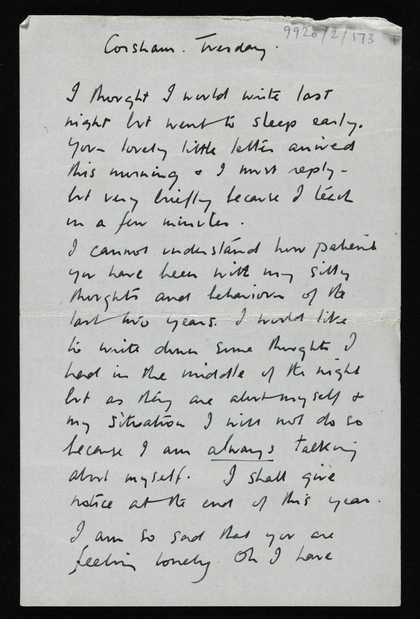 9920/2/173
Corsham. Tuesday.
I thought I would write last
night but went to sleep early.
Your lovely little letter arrived
this morning & I must reply -
but very briefly because I teach
in a few minutes.
I cannot understand how patient
you have been with my silly
thoughts and behaviour of the
last two years. I would like
to write down some thoughts I
had in the middle of the night
but as they are about myself &
my situation I will not do so
because I am always talking
about myself. I shall give
notice at the end of this year.
I am so sad that you are
feeling lonely. Oh I have